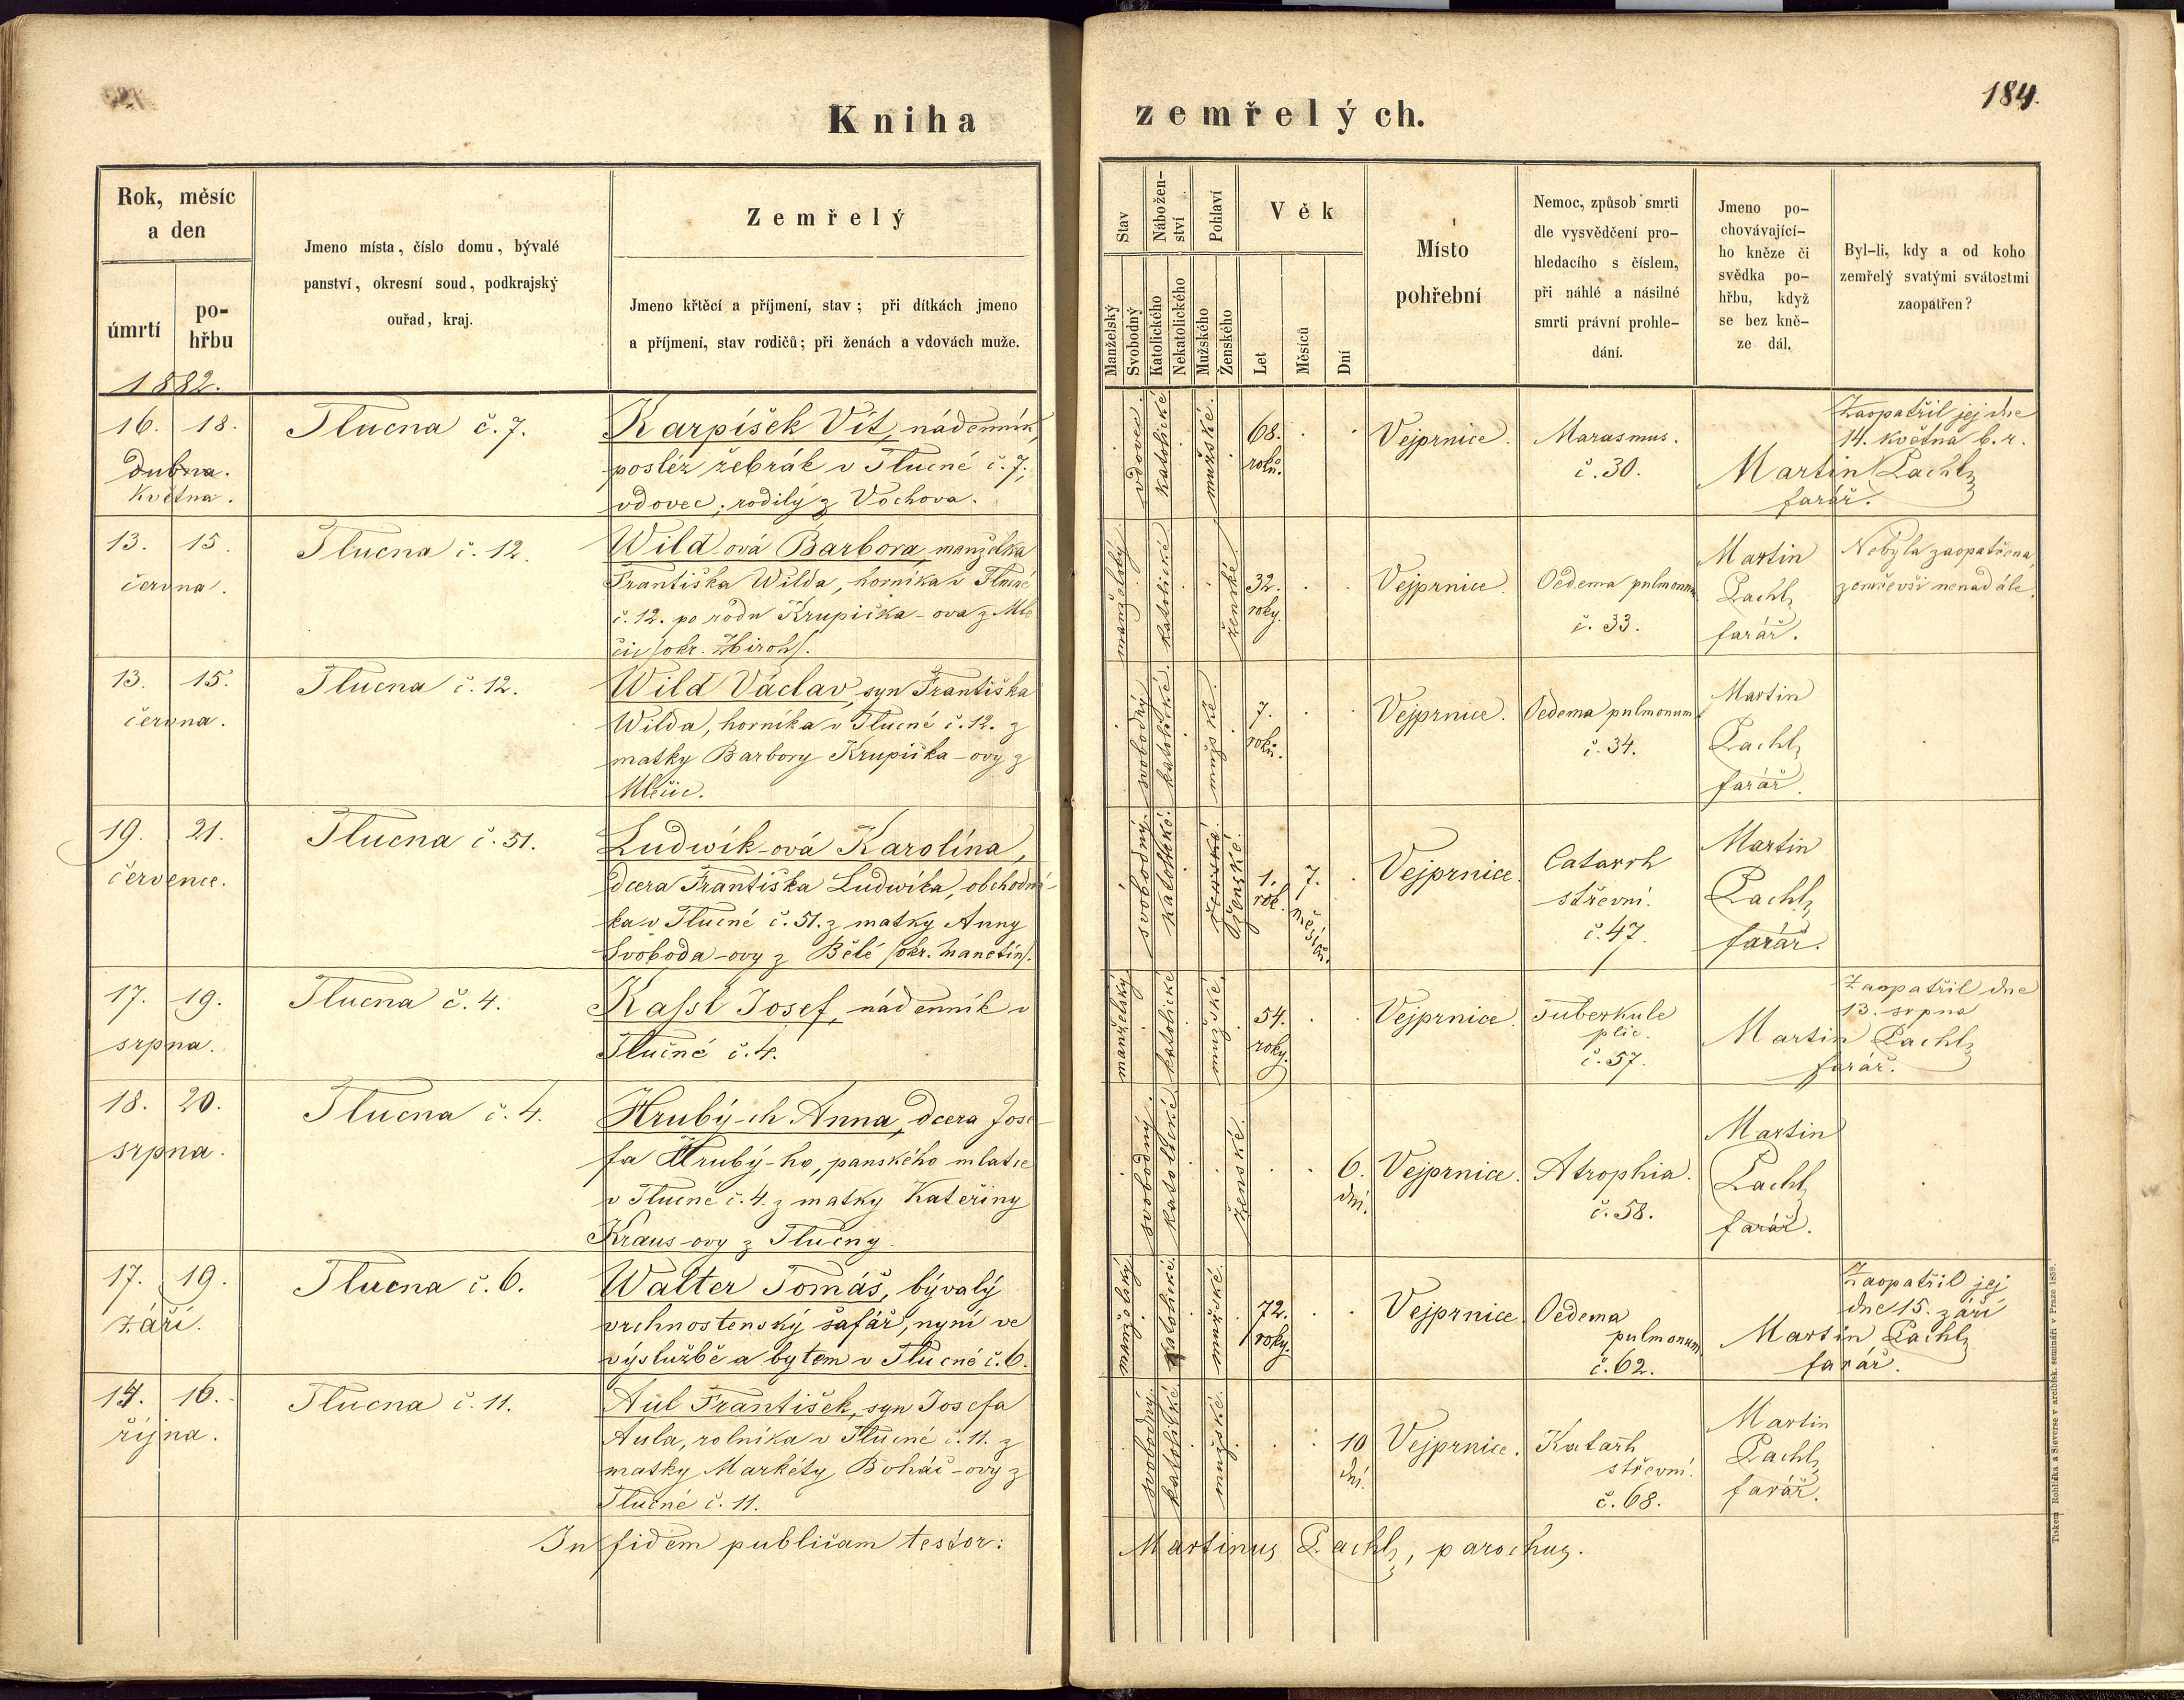 Kniha
zemřelých.
184.
Rok, měsíc
a den
úmrtí
po-
hřbu
1882.
Jmeno místa, číslo domu, bývalé
panství, okresní soud, podkrajský
ouřad, kraj.
Zemřelý
Jmeno křtěcí a příjmení, stav; při dítkách jmeno
a příjmení, stav rodičů; při ženách a vdovách muže.
Stav
Manželský
Svobodný
Nábožen-
ství
Katolického
Nekatolického
Pohlaví
Mužského
Ženského
Věk
Let
Měsíců
Dní
Místo
pohřební
Nemoc, způsob smrti
dle vysvědčení pro-
hledacího s číslem,
při náhlé a násilné
smrti právní prohle-
dání.
Jmeno po-
chovávající-
ho kněze či
svědka po-
hřbu, když
se bez kně-
ze dál.
Byl-li, kdy a od koho
zemřelý svatými svátostmi
zaopatřen?
16. 18.
dubna.
května.
Tlucna č. 7.
Karpíšek Vít, nádenník,
posléz žebrák v Tlucné č. 7,
vdovec, rodilý z Vochova.
vdovec.
katolické
mužské.
68.
roků.
Vejprnice.
Marasmus.
č. 30.
Zaopatřil jej dne
14. května b. r.
Martin Pachl,
farář.
13. 15.
června.
Tlucna č. 12.
Wild-ová Barbora, manželka
Františka Wilda, horníka v Tlucné
č. 12. po rodu Krupička-ova z Mle
čic /okr. Zbiroh/.
manželský.
katolické
ženské
32.
roky.
Vejprnice.
Oedema pulmonum
č. 33.
Martin
Pachl,
farář.
Nebyla zaopatřena,
zemřevši nenadále.
13. 15.
června.
Tlucna č. 12.
Wild Václav, syn Františka
Wilda, horníka v Tlucné č. 12. z
matky Barbory Krupička-ovy z
Mlečic.
svobodný
katolické.
mužské.
7.
roků.
Vejprnice.
Oedema pulmonum
č. 34.
Martin
Pachl,
farář.
19. 21.
července.
Tlucna č. 51.
Ludwík-ová Karolína,
dcera Františka Ludwíka, obchodní-
ka v Tlucné č. 51. z matky Anny
Svoboda-ovy z Bělé /okr. Manetín/.
svobodný.
katolické.
ženské.
1.
rok.
7.
měsíců.
Vejprnice.
Catarrh
střevní.
č. 47.
Martin
Pachl,
farář.
17. 19.
srpna.
Tlucna č. 4.
Kassl Josef, nádenník v
Tlučné č. 4.
manželský
katolické
mužské.
54.
roky.
Vejprnice.
Tuberkule
plic.
č. 57.
Zaopatřil dne
13. srpna
Martin Pachl,
farář.
18. 20.
srpna.
Tlucna č. 4.
Hrubý-ch Anna, dcera Jose-
fa Hrubý-ho, panského mlatce
v Tlucné č. 4. z matky Kateřiny
Kraus-ovy z Tlučny.
svobodný.
katolické
ženské.
6.
dní.
Vejprnice.
Atrophia.
č. 58.
Martin
Pachl,
farář.
17. 19.
září.
Tlucna č. 6.
Walter Tomáš, bývalý
vrchnostenský šafář, nyní ve
výslužbě a bytem v Tlucné č. 6.
manželský
katolické.
mužské.
72.
roky.
Vejprnice.
Oedema
pulmonum
č. 62.
Zaopatřil jej
dne 15. září
Martin Pachl,
farář.
14. 16.
října.
Tlucna č. 11.
Aul František, syn Josefa
Aula, rolníka v Tlucné č. 11. z
matky Markéty Boháč-ovy z
Tlučné č. 11.
svobodný.
katolické
mužské.
10
dní.
Vejprnice.
Katarh
střevní.
č. 68.
Martin
Pachl,
farář.
In fidem publicam testor:
Martinus Pachl, parochus.
Tiskem Rohlíka a Sieverse v arcibisk. semináři v Praze 1859.